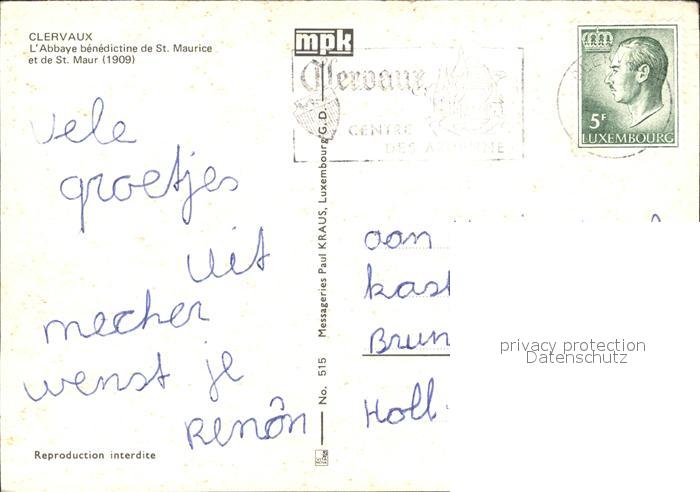 CLERVAUX
L'Abbaye bénédictine de St. Maurice
et de St. Maur (1909)
mpk
Clervaux
CENTRE
DES ARDENNE
5F
LUXEMBOURG
vele
groetjes
uit
mecher
wenst je
Renôn
No. 515 Messageries Paul KRAUS, Luxembourg/G.D.
aan
kast
Brun
Holl.
privacy protection
Datenschutz
Reproduction interdite